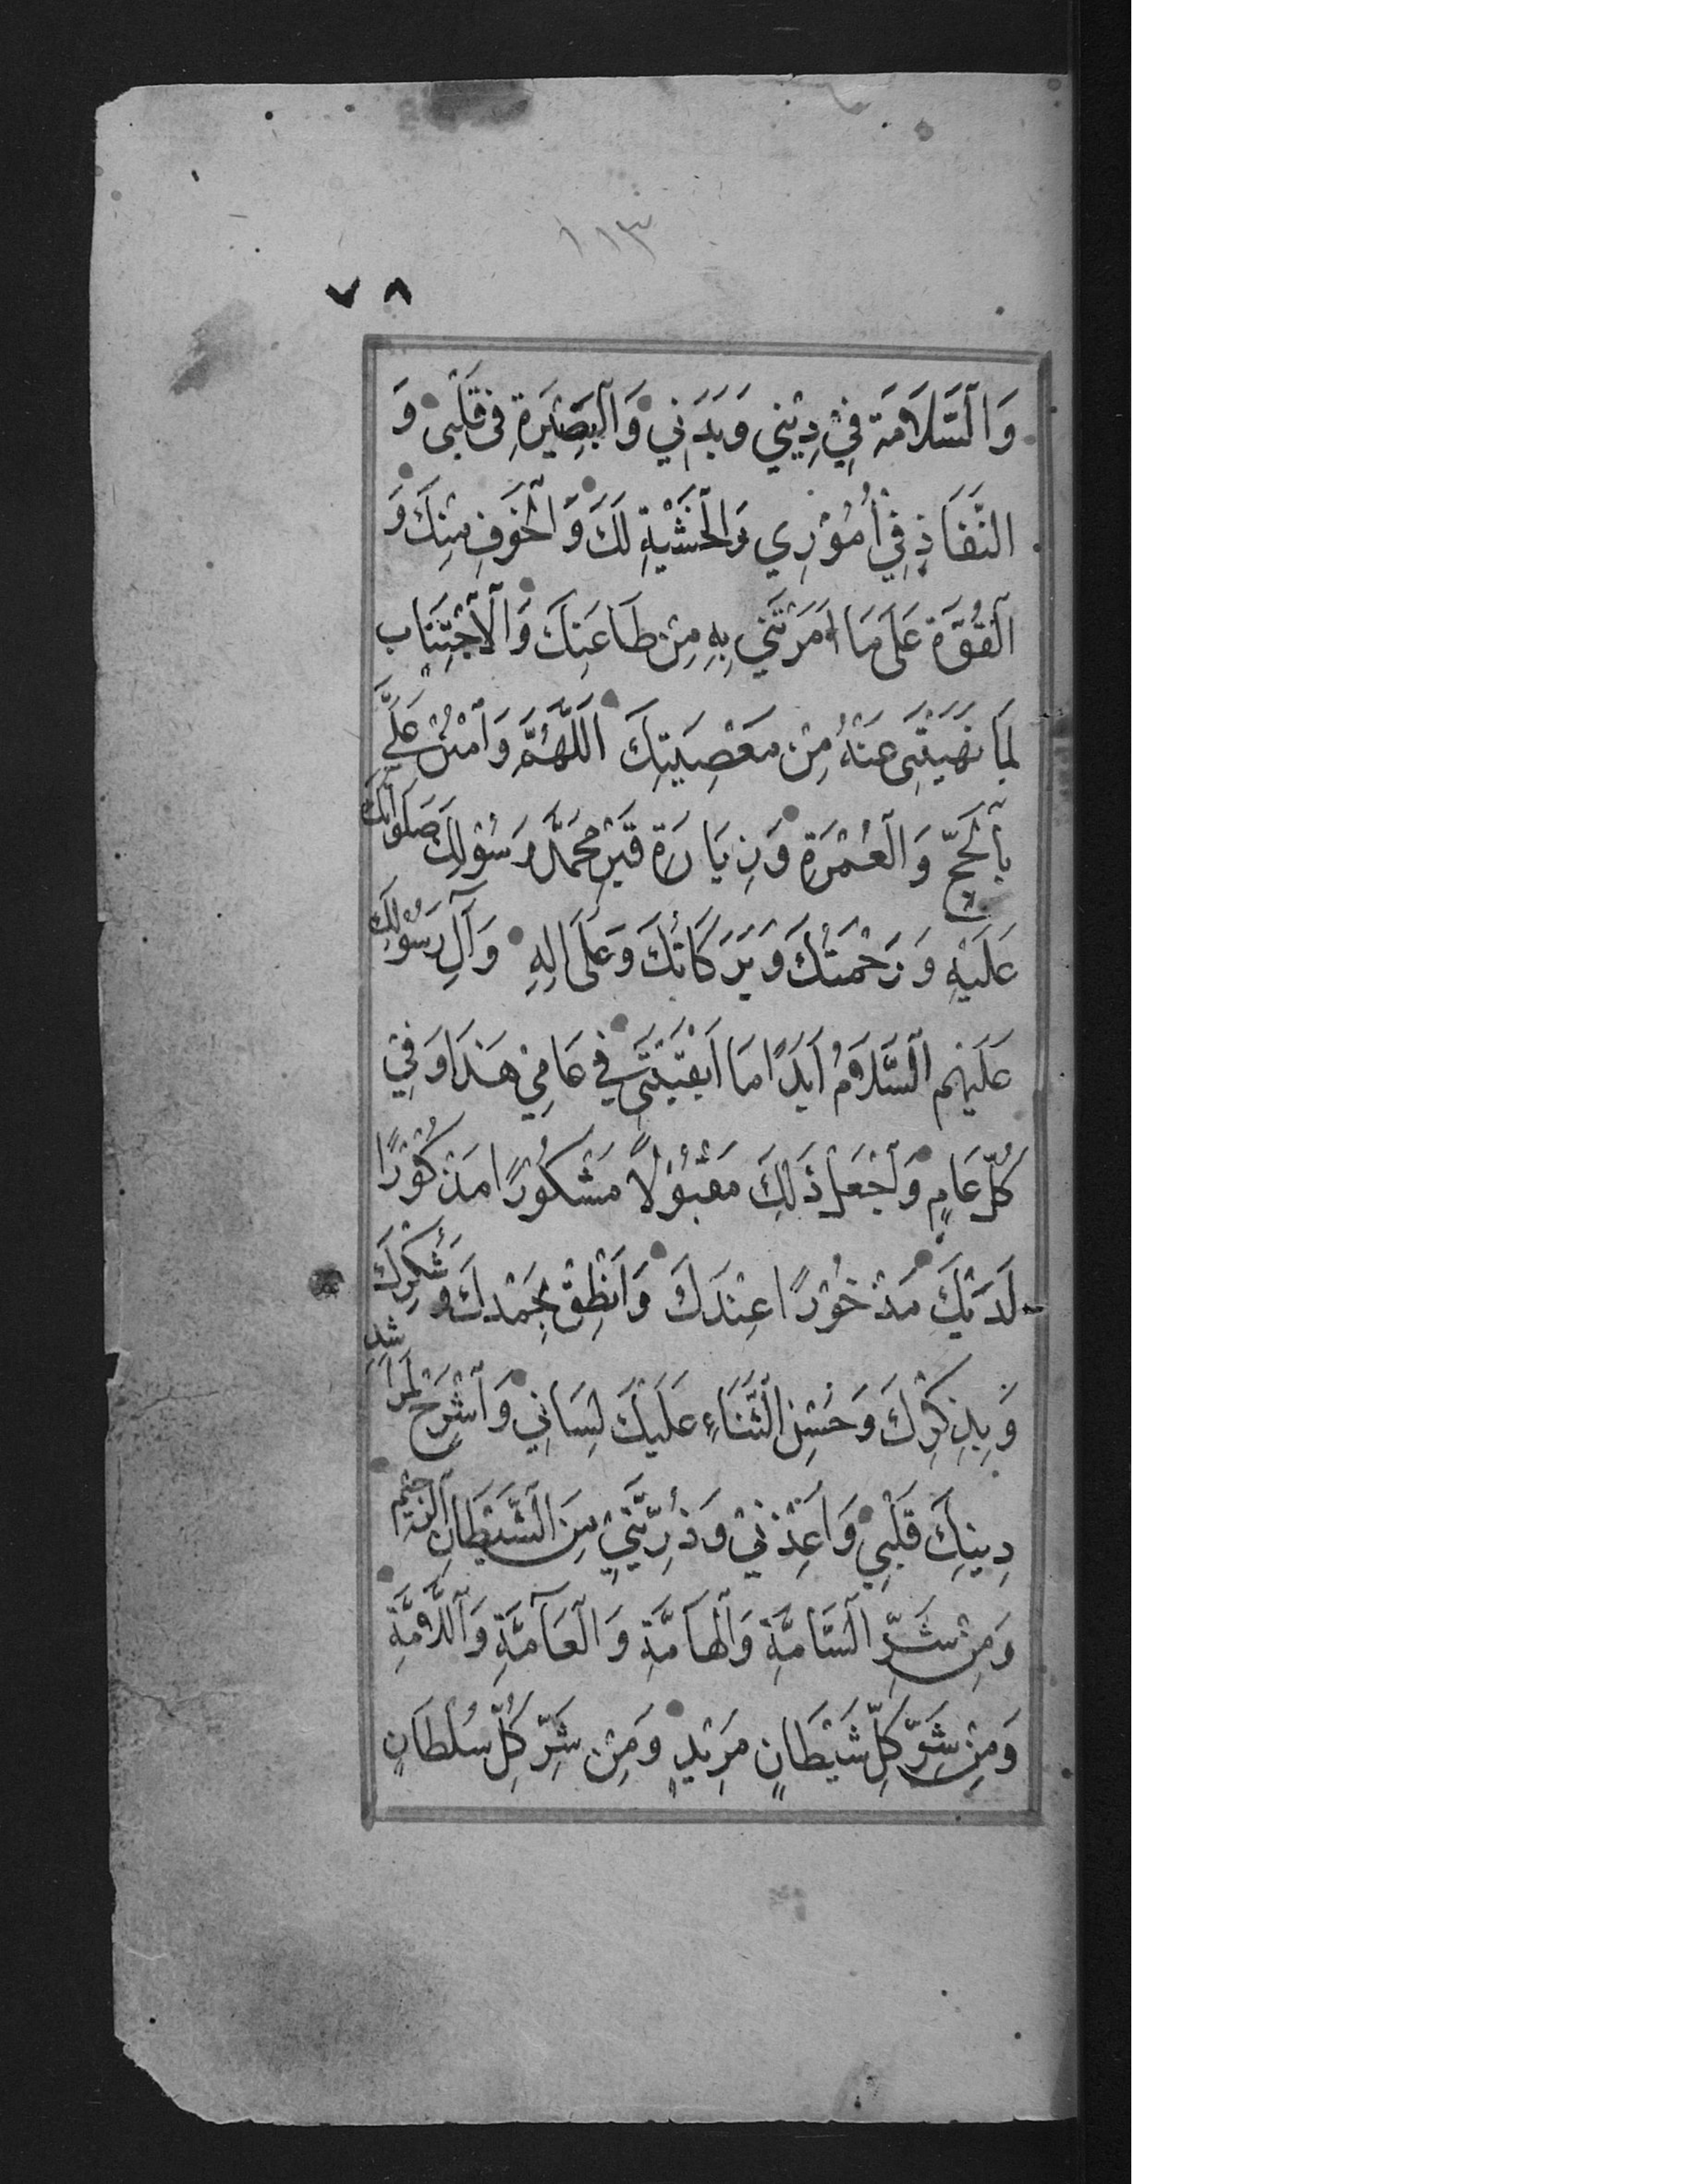 ١١٣
٧٨
وَالسَّلَامَةَ فِي دِيْنِي وَبَدَنِي وَالْبَصِيْرَةِ فِي قَلْبِي وَ
النَّفَاذِ فِي أُمُوْرِي وَالْخَشْيَةِ لَكَ وَالْخَوْفِ مِنْكَ وَ
الْقُوَّةِ عَلَى مَا اَمَرْتَنِي بِهِ مِنْ طَاعَتِكَ وَالْاجْتِنَابِ
لِمَا نَهَيْتَنِي عَنْهُ مِنْ مَعْصِيَتِكَ اَللَّهُمَّ وَامْنُنْ عَلَيَّ
بِالْحَجِّ وَالْعُمْرَةِ وَزِيَارَةِ قَبْرِ مُحَمَّدٍ رَسُوْلِكَ صَلَوَاتُكَ
عَلَيْهِ وَرَحْمَتُكَ وَبَرَكَاتُكَ وَعَلَى اٰلِهِ وَآلِ رَسُوْلِكَ
عَلَيْهِمُ السَّلَامُ اَبَدًا مَا اَبْقَيْتَنِي فِي عَامِي هَذَا وَفِي
كُلِّ عَامٍ وَاجْعَلْ ذَلِكَ مَقْبُوْلًا مَشْكُوْرًا مَذْكُوْرًا
لَدَيْكَ مَذْخُوْرًا عِنْدَكَ وَاَنْطِقْ بِحَمْدِكَ وَشُكْرِكَ
وَبِذِكْرِكَ وَحُسْنِ الثَّنَاءِ عَلَيْكَ لِسَانِي وَاشْرَحْ لِمَرَاشِدِ
دِينِكَ قَلْبِي وَاَعِذْنِي وَذُرِّيَّتِي مِنَ الشَّيْطَانِ الرَّجِيْمِ
وَمِنْ شَرِّ السَّامَّةِ وَالْهَامَّةِ وَالْعَآمَّةِ وَاللَّامَّةِ
وَمِنْ شَرِّ كُلِّ شَيْطَانٍ مَرِيْدٍ وَمِنْ شَرِّ كُلِّ سُلْطَانٍ